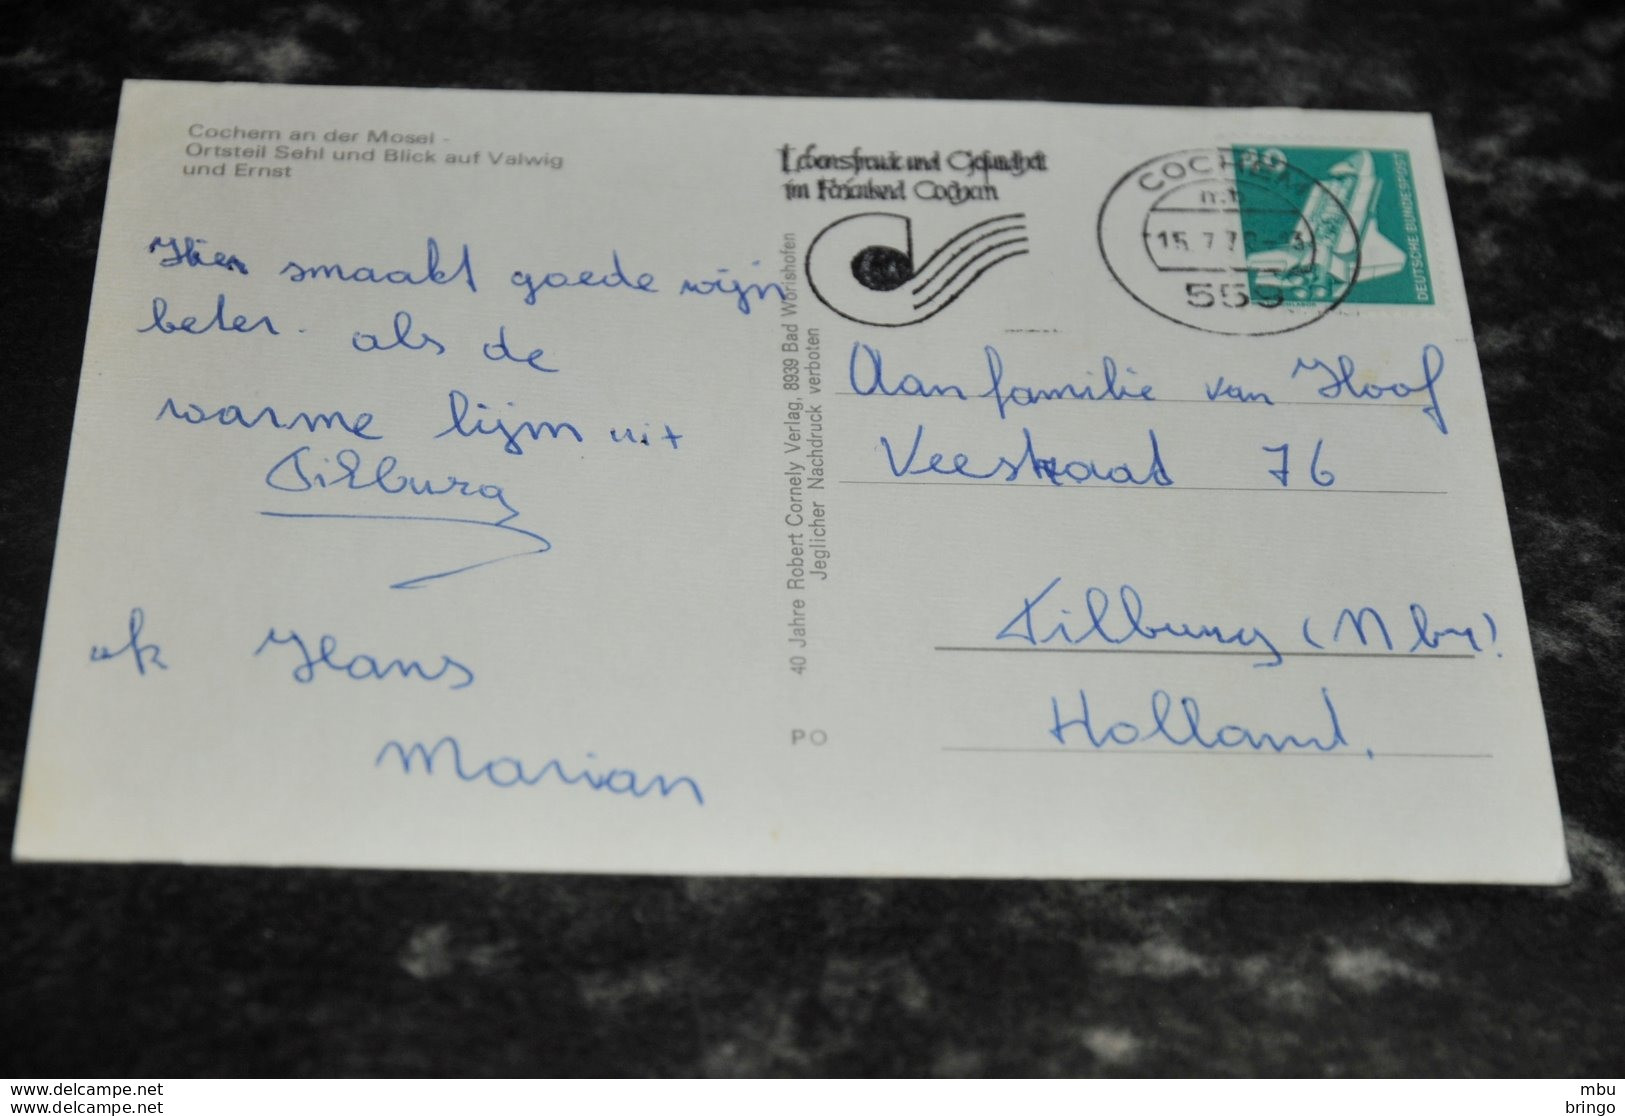 Cochem an der Mosel -
Ortsteil Sehl und Blick auf Valwig
und Ernst
Hier smaakt goede wijn
beter als de
warme lijm uit
Tilburg
Hans
Marian
40 Jahre Robert Cornely Verlag, 8939 Bad Wörishofen
Jeglicher Nachdruck verboten
PO
Lebensfreude und Gesundheit
im Ferienland Cochem
COCHEM
15.7.76-13
559
DEUTSCHE BUNDESPOST
Aan familie van Hoof
Veestraat 76
Tilburg (N br)
Holland.
www.delcampe.net
www.delcampe.com
mbu
bringo